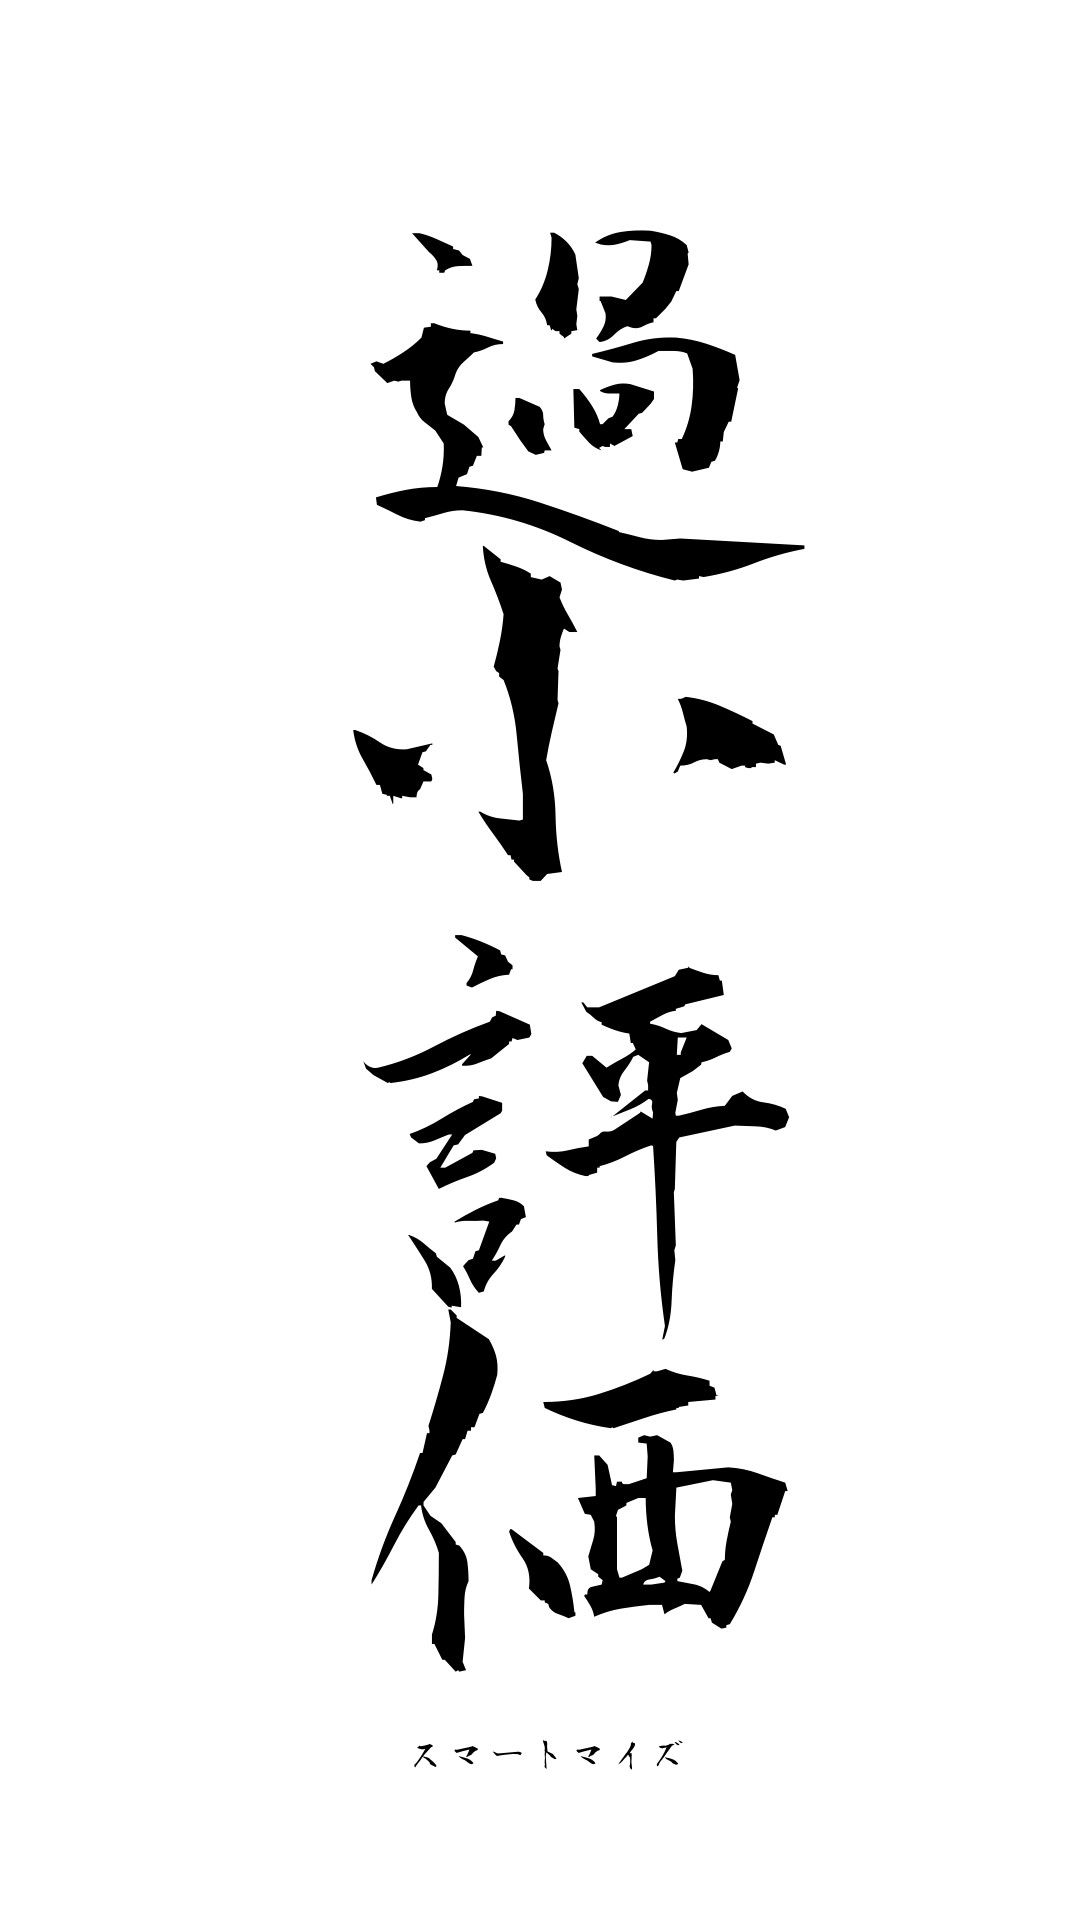 過小評価
スマートマイズ